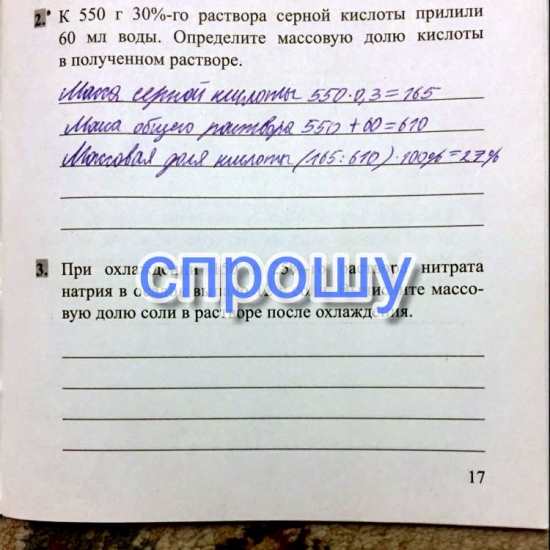 2.* К 550 г 30%-го раствора серной кислоты прилили
60 мл воды. Определите массовую долю кислоты
в полученном растворе.
Масса серной кислоты 550·0,3=165
Маса общего раствора 550+60=610
Массовая доля кислоты (165:610)·100%=27%
3. При нитрата
натрия в массо-
вую долю соли в растворе после охлаждения.
спрошу
17